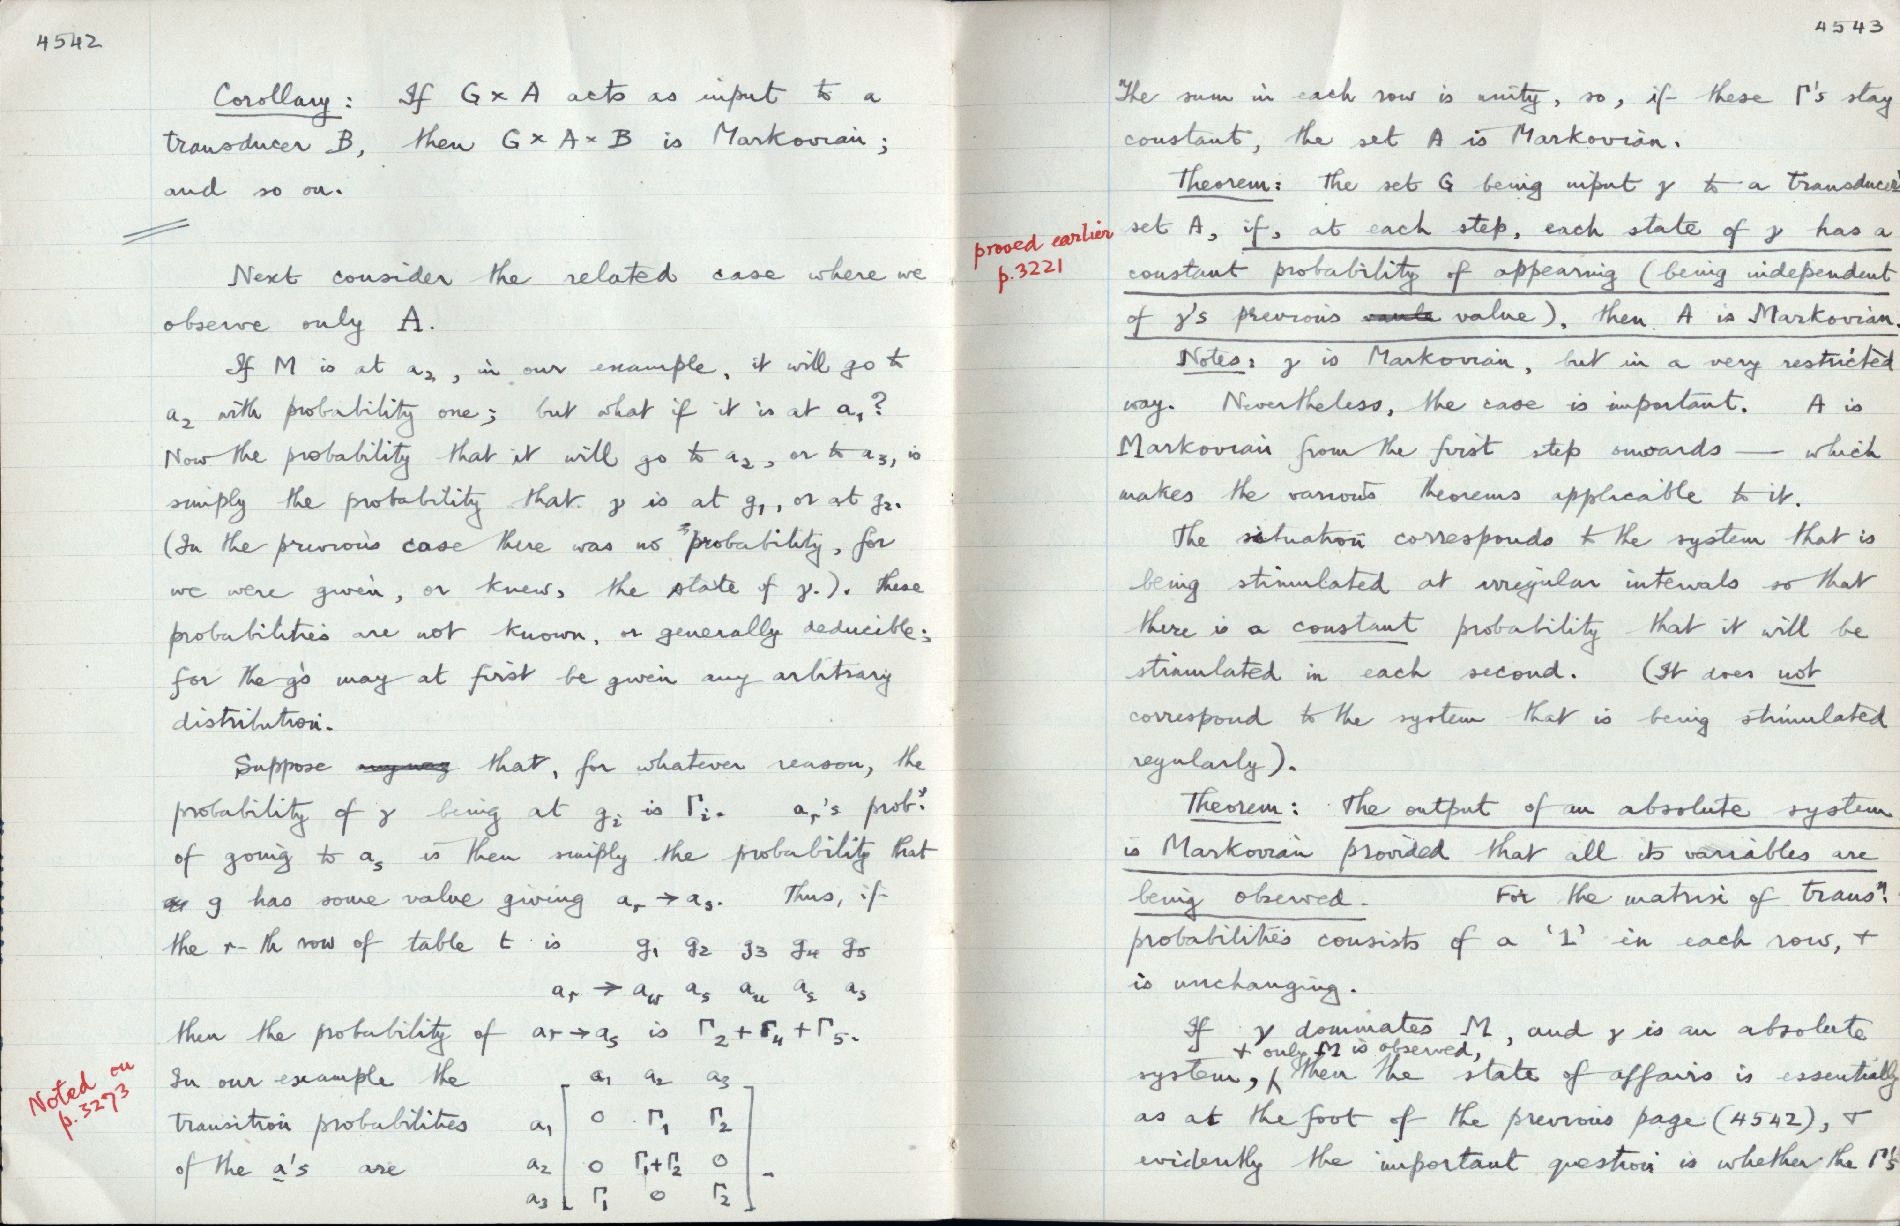 4542
Corollary: If G × A acts as input to a
transducer B, then G × A × B is Markovian;
and so on.
Next consider the related case where we
observe only A.
If M is at a₂, in our example, it will go to
a₂ with probability one; but what if it is at a₁?
Now the probability that it will go to a₂, or to a₃, is
simply the probability that γ is at g₁, or at g₂.
(In the previous case there was no "probability, for
we were given, or knew, the state of γ.). These
probabilities are not known, or generally deducible;
for the g's may at first be given any arbitrary
distribution.
Suppose that, for whatever reason, the
probability of γ being at gᵢ is Γᵢ. aᵣ's prob.y
of going to aₛ is then simply the probability that
g has some value giving aᵣ → aₛ. Thus, if
the r-th row of table t is g₁ g₂ g₃ g₄ g₅
aᵣ → a_w aₛ aᵤ aₛ aₛ
then the probability of aᵣ → aₛ is Γ₂ + Γ₄ + Γ₅.
Noted on
p. 3273
In our example the a₁ a₂ a₃
transition probabilities a₁ 0 Γ₁ Γ₂
of the a's are a₂ 0 Γ₁+Γ₂ 0
a₃ Γ₁ 0 Γ₂
4543
The sum in each row is unity, so, if these Γ's stay
constant, the set A is Markovian.
Theorem: The set G being input γ to a transducer
set A, if, at each step, each state of γ has a
proved earlier
p. 3221
constant probability of appearing (being independent
of γ's previous value), then A is Markovian.
Notes: γ is Markovian, but in a very restricted
way. Nevertheless, the case is important. A is
Markovian from the first step onwards — which
makes the various theorems applicable to it.
The situation corresponds to the system that is
being stimulated at irregular intervals so that
there is a constant probability that it will be
stimulated in each second. (It does not
correspond to the system that is being stimulated
regularly).
Theorem: The output of an absolute system
is Markovian provided that all its variables are
being observed. For the matrix of trans.n
probabilities consists of a '1' in each row, +
is unchanging.
If γ dominates M, and γ is an absolute
+ only M is observed,
system, then the state of affairs is essentially
as at the foot of the previous page (4542), +
evidently the important question is whether the Γ's